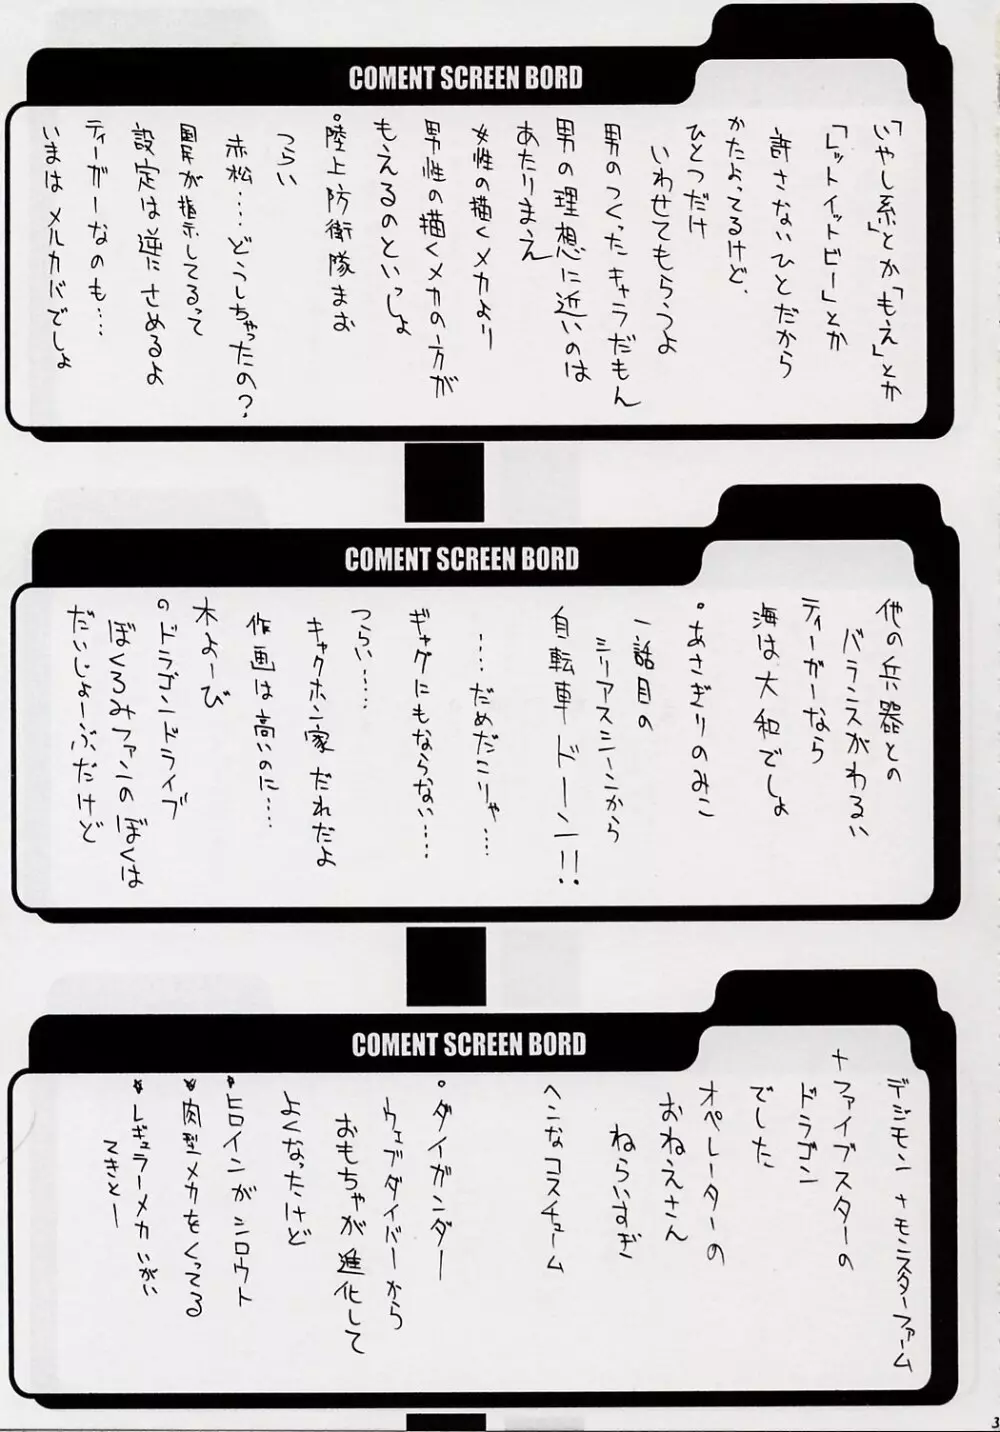 COMENT SCREEN BORD
「いやし系」とか「もえ」とか
「レットイットビー」とか
許さないひとだから
かたよってるけど、
ひとつだけ
いわせてもらうよ
男のつくったキャラだもん
男の理想に近いのは
あたりまえ
女性の描くメカより
男性の描くメカの方が
もえるのといっしょ
°陸上防衛隊まお
つらい
赤松....どうしちゃったの?
国が指示してるって
設定は逆にさめるよ
ティーガーなのも....
いまはメルカバでしょ
COMENT SCREEN BORD
他の兵器との
バランスがわるい
ティーガーなら
海は大和でしょ
°あさぎりのみこ
一話目の
シリアスシーンから
自転車ドーン!!
....だめだこりゃ....
ギャグにもならない....
つらい.....
キャクホン家だれだよ
作画は高いのに....
木よーび
のドラゴンドライブ
ぼくろみファンのぼくは
だいじょーぶだけど
COMENT SCREEN BORD
デジモン+モンスターファーム
+ファイブスターの
ドラゴン
でした
オペレーターの
おねえさん
ねらいすぎ
ヘンなコスチューム
°ダイガンダー
ウェブダイバーから
おもちゃが進化して
よくなったけど
ヒロインがシロウト
肉型メカをくってる
レギュラーメカいがい
てきとー
3